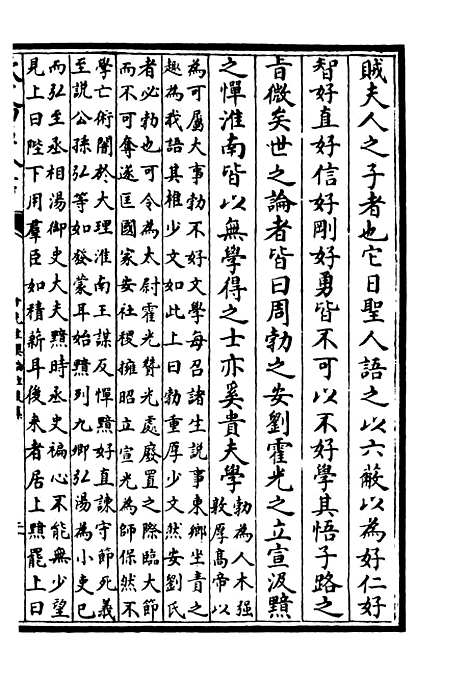 賊夫人之子者也它日聖人語之以六蔽以為好仁好
智好直好信好剛好勇皆不可以不好學其悟子路之
旨微矣世之論者皆曰周勃之安劉霍光之立宣汲黯
之憚淮南皆以無學得之士亦奚貴夫學
勃為人木强
敦厚高帝以
為可屬大事勃不好文學每召諸生說事東鄉坐責之
趣為我語其椎少文如此上曰勃重厚少文然安劉氏
者必勃也可令為太尉霍光贊光處廢置之際臨大節
而不可奪遂匡國家安社稷擁昭立宣光為師保然不
學亡術闇於大理淮南王謀反憚黯好直諫守節死義
至說公孫弘等如發蒙耳始黯列九卿弘湯為小吏已
而弘至丞相湯御史大夫黯時丞史褊心不能無少望
見上曰陛下用羣臣如積薪耳後來者居上黯罷上曰